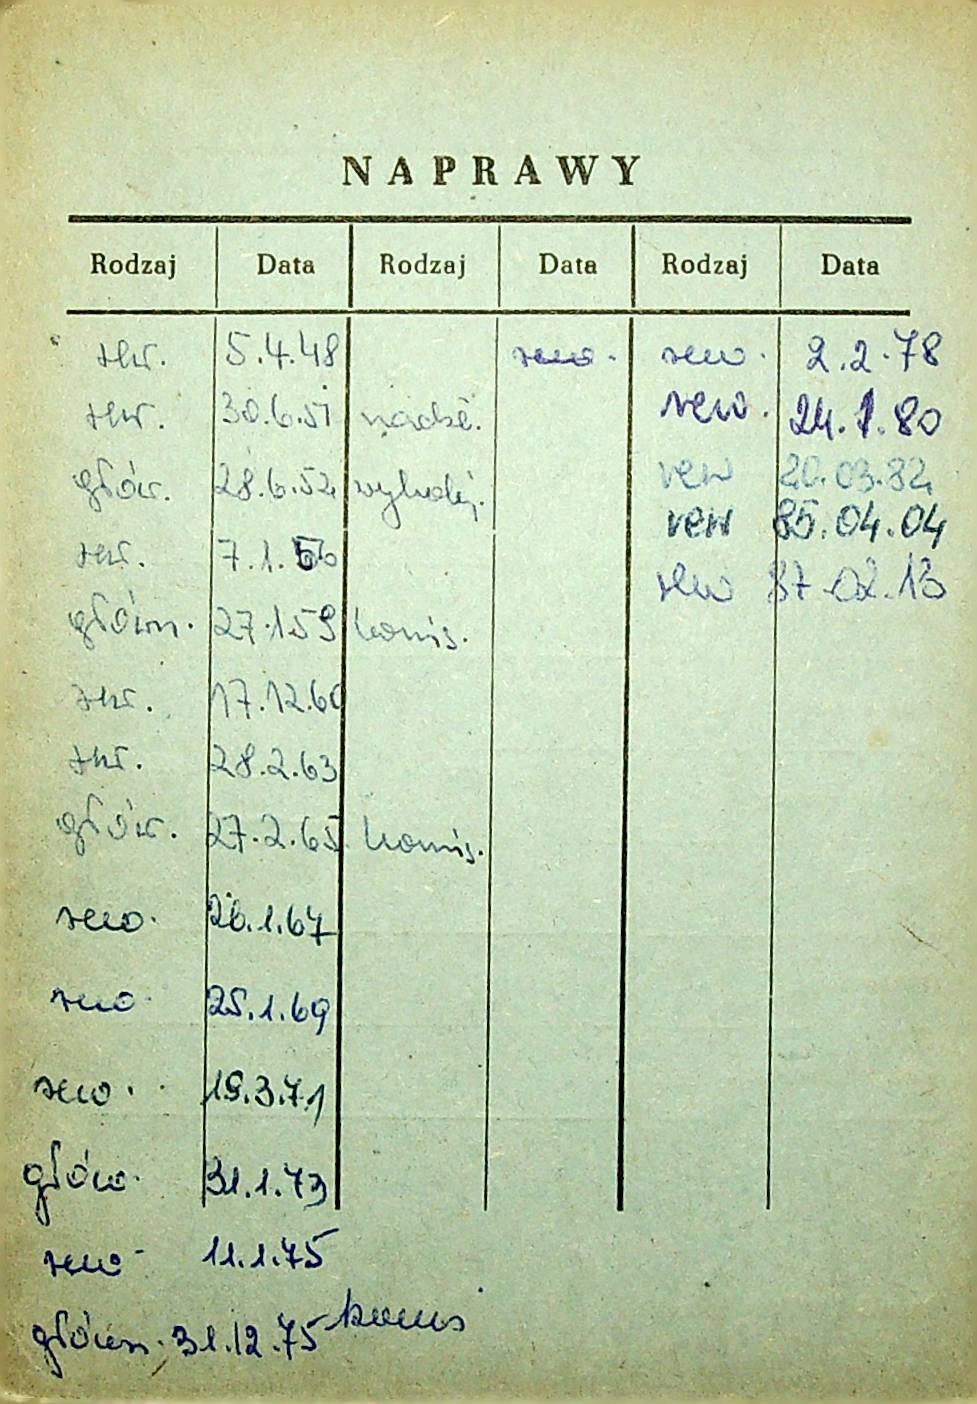 NAPRAWY
Rodzaj Data Rodzaj Data Rodzaj Data
rew. 5.4.48 rew. rew. 2.2.78
rew. 30.6.51 nadzé. rew. 24.1.80
głów. 28.6.52 rew 20.03.82
rew 85.04.04
rew. 7.1.56 rew 87.02.13
główn. 27.1.59 komis.
rew. 17.12.60
rew. 28.2.63
głów. 27.2.65 komis.
rew. 26.1.67
rew. 25.1.69
rew. 19.3.71
głów. 31.1.73
rew. 11.1.75
główn. 31.12.75 komis